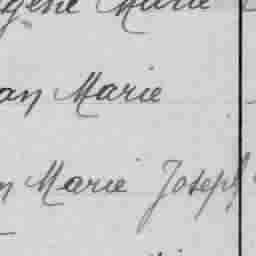 Marie
an Marie
n Marie Joseph